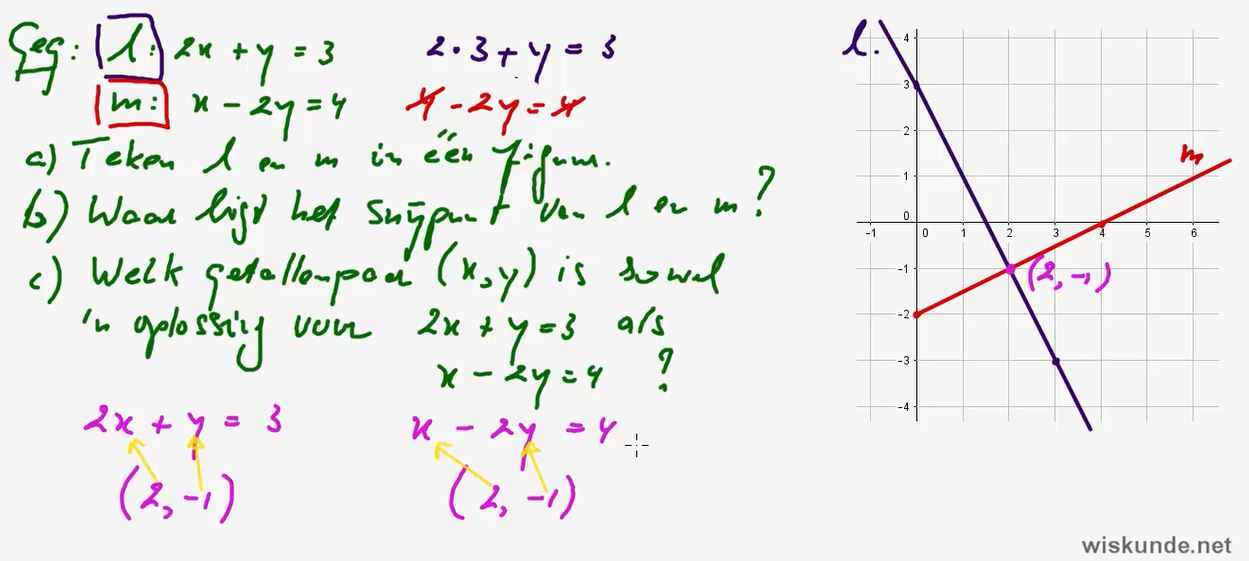 Geg: l: 2x + y = 3 2·3 + y = 3
m: x - 2y = 4 4 - 2y = 4
a) Teken l en m in één figuur.
b) Waar ligt het snijpunt van l en m?
c) Welk getallenpaar (x,y) is zowel
'n oplossing voor 2x + y = 3 als
x - 2y = 4 ?
2x + y = 3 x - 2y = 4
(2, -1) (2, -1)
l.
m
(2, -1)
4
3
2
1
0
-1 0 1 2 3 4 5 6
-1
-2
-3
-4
wiskunde.net